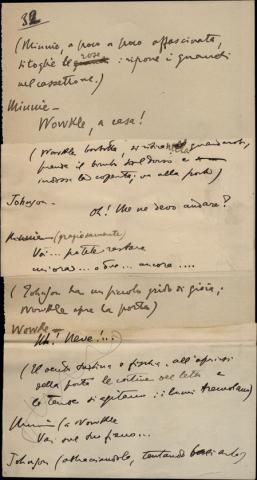 32
(Minnie, a poco a poco affascinata,
si toglie le rose : ripone i guanti
nel cassettone.)
Minnie –
Wowkle, a casa!
(Wowkle borbotta, si ritira nella guardarob,
prende il bimbo sul dorso e
indossa la coperta; va alla porta)
Johnson –
Oh! Me ne devo andare?
Minnie – (graziosamente)
Voi... potete restare
un'ora... o due... ancora....
(Johnson ha un piccolo grido di gioia;
Wowkle apre la porta)
Wowkle –
Uh! Neve!...
(Il vento turbina e fischia. all'aprirsi
della porta le cortine del letto e
le tende si agitano: i lumi tremolano)
Minnie (a Wowkle
Johnson (abbracciandola, tentando baciarla)